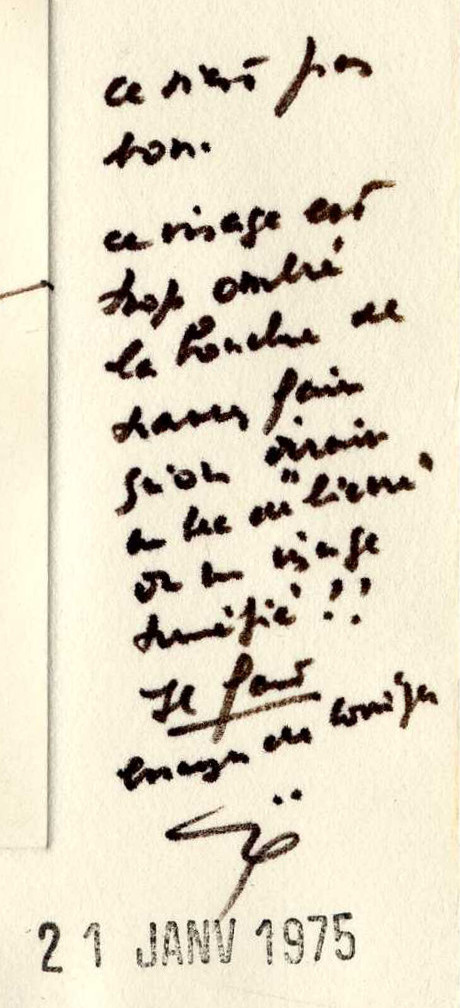 ce n'est pas
bon.
ce visage est
trop ombré
la bouche de
travers fait
qu'on dirait
un bec de lièvre
ou un visage
tuméfié !!
Il faut
essayer de corriger
21 JANV 1975